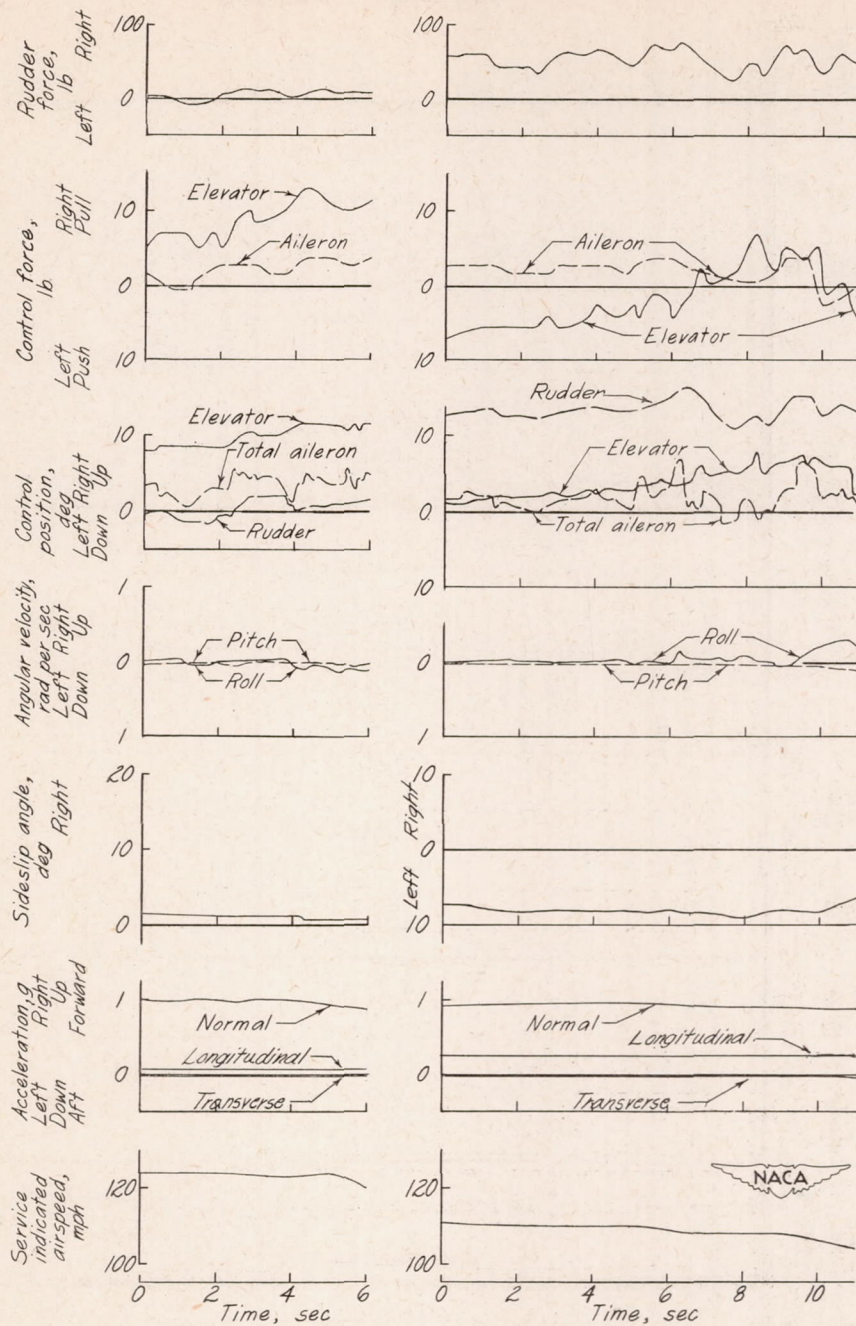 Rudder force, lb
Left Right
100
0
100
0
Control force, lb
Left Right
Push Pull
10
0
10
Elevator
Aileron
10
0
10
Aileron
Elevator
Control position, deg
Left Right
Down Up
10
0
Elevator
Total aileron
Rudder
10
0
10
Rudder
Elevator
Total aileron
Angular velocity, rad per sec
Left Right
Down Up
1
0
1
Pitch
Roll
1
0
1
Roll
Pitch
Sideslip angle, deg
Right
20
10
0
Left Right
10
0
10
Acceleration, g
Left Right
Down Up
Aft Forward
1
0
Normal
Longitudinal
Transverse
1
0
Normal
Longitudinal
Transverse
Service indicated airspeed, mph
120
100
0 2 4 6
Time, sec
120
100
0 2 4 6 8 10
Time, sec
NACA